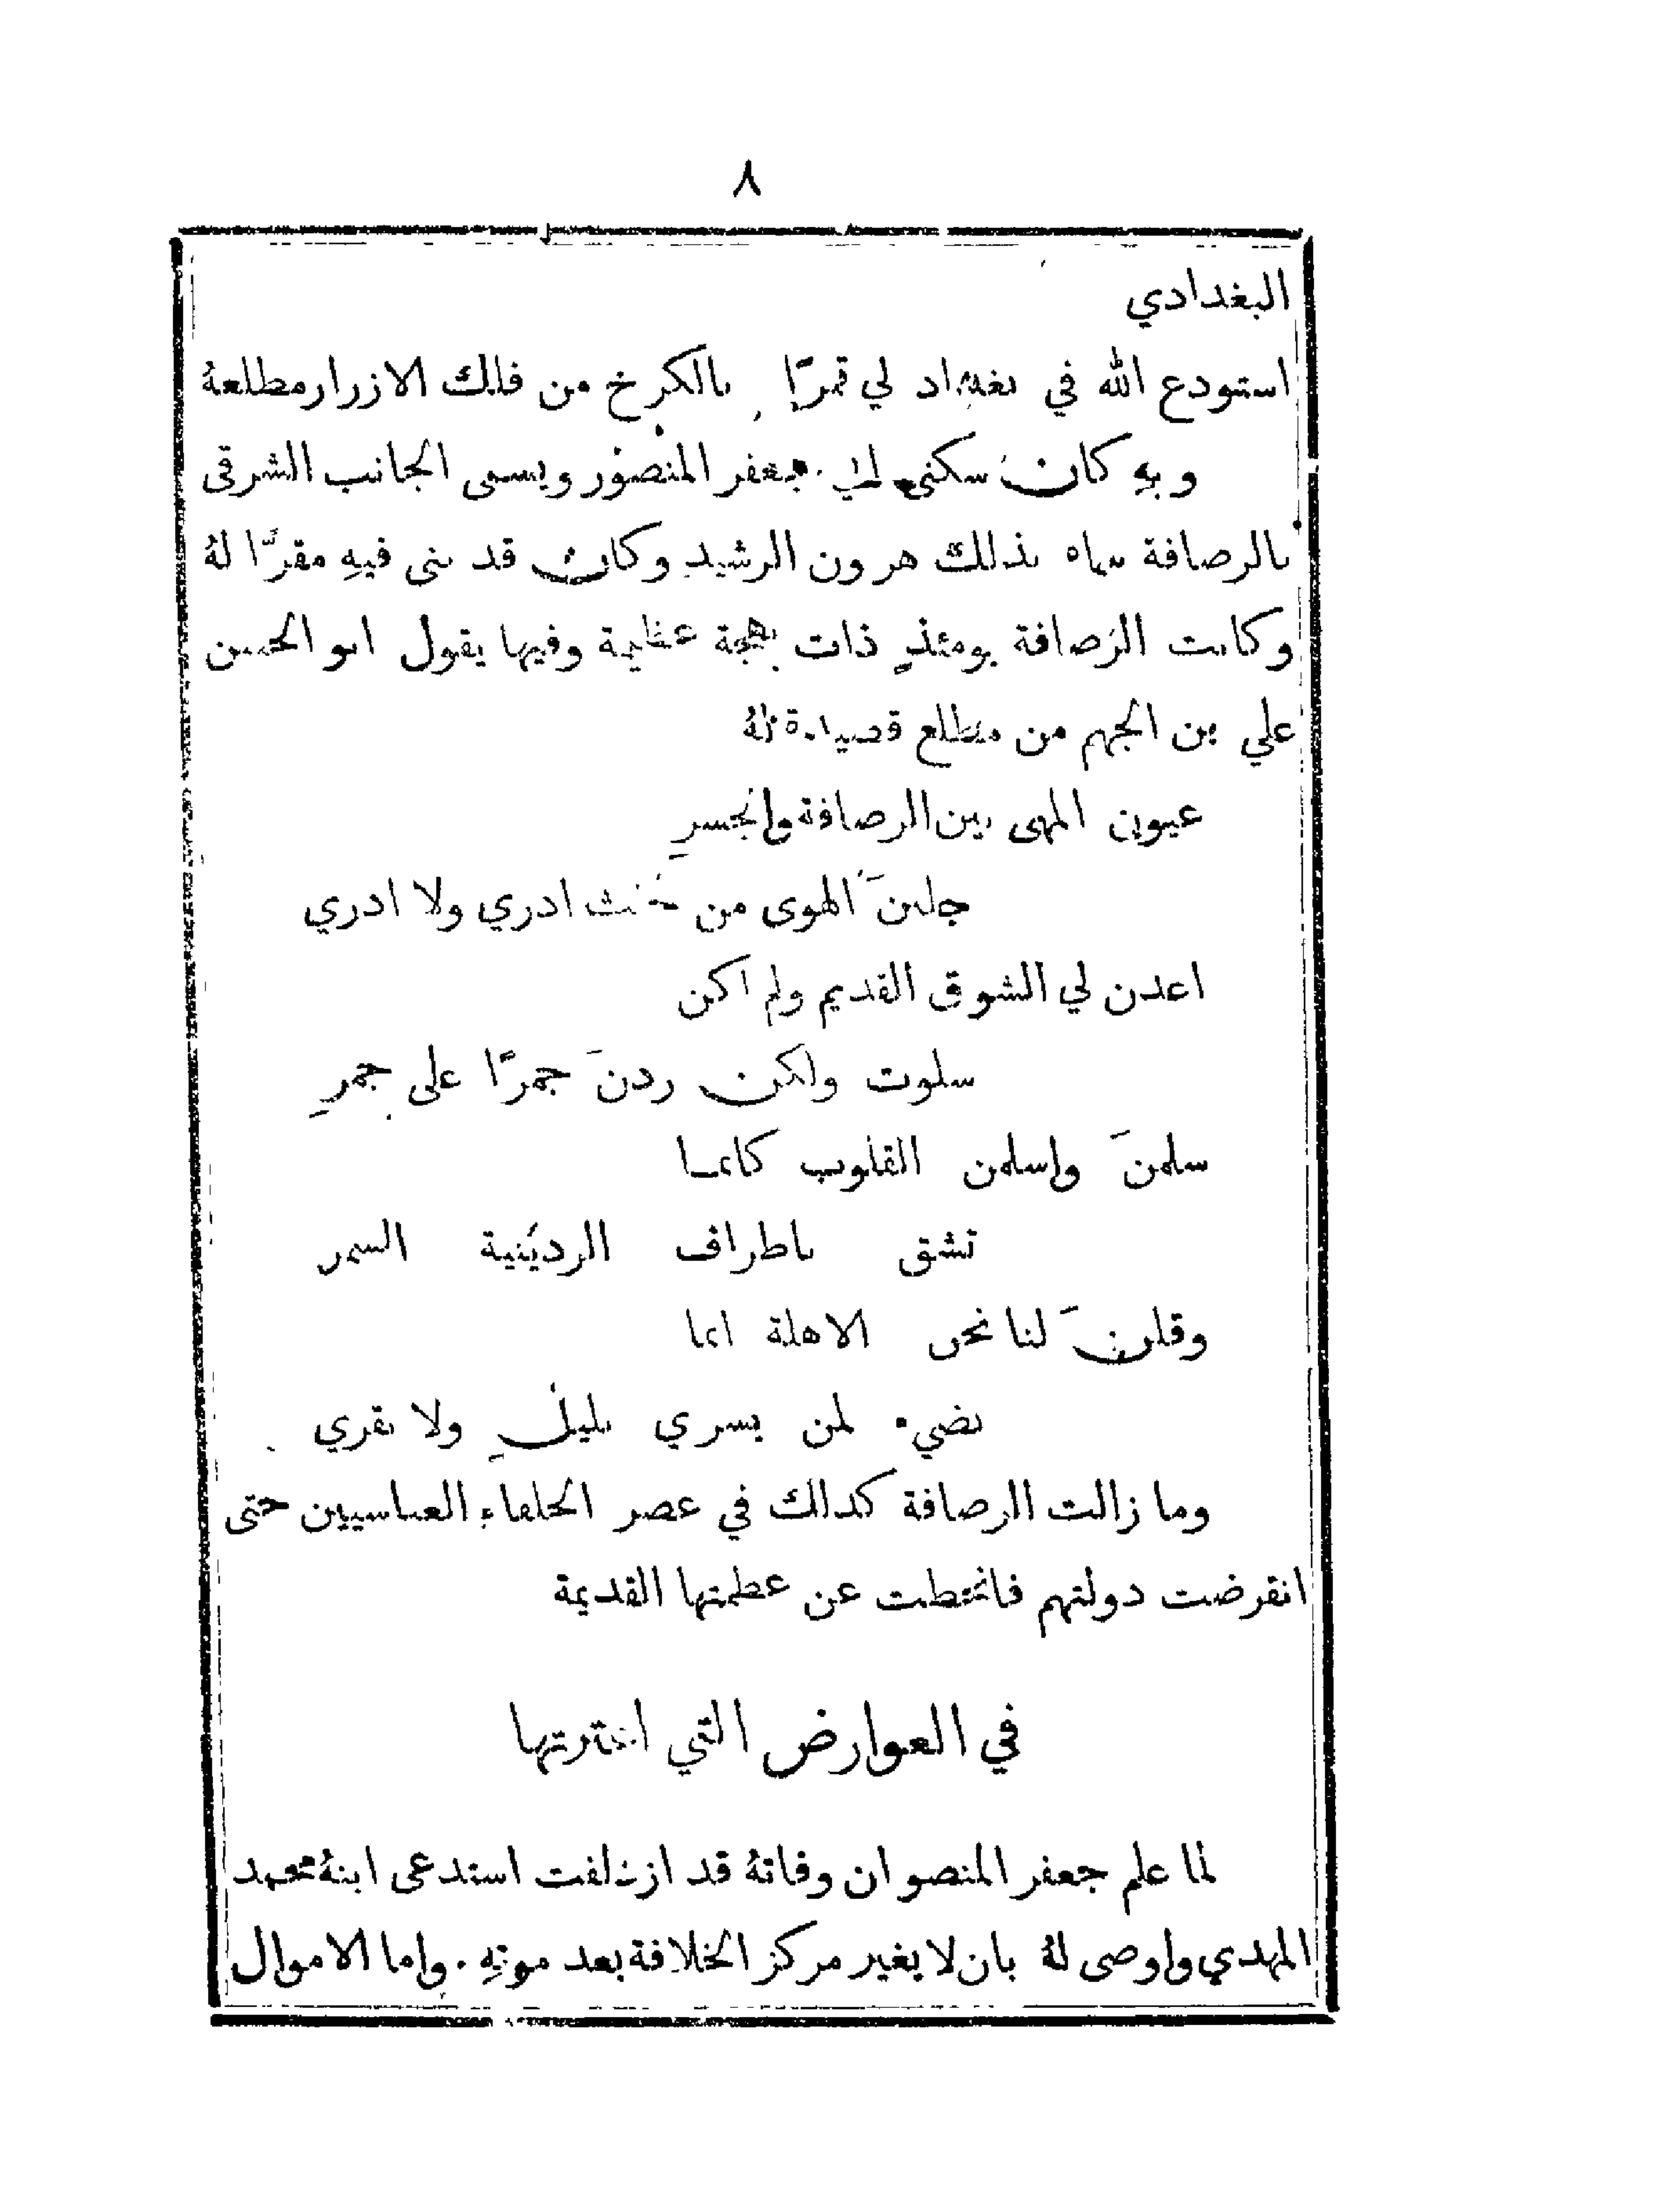 ٨
البغدادي
استودع الله في بغداد لي قمرًا بالكرخ من فلك الازرار مطلعهُ
وبهِ كان سكنى جعفر المنصور ويسمى الجانب الشرقى
بالرصافة سماه بذلك هرون الرشيد وكان قد بنى فيهِ مقرًّا لهُ
وكانت الرصافة يومئذٍ ذات بهجة عظيمة وفيها يقول ابو الحسن
علي بن الجهم من مطلع قصيدة لهُ
عيون المهى بين الرصافة والجسرِ
جلبنَ الهوى من حيث ادري ولا ادري
اعدن لي الشوق القديم ولم اكن
سلوت ولكن زدنَ جمرًا على جمرِ
سلمنَ واسلمن القلوب كانما
تشق باطراف الردينية السمر
وقلنَ لنا نحن الاهلة انما
نضيء لمن يسري بليلٍ ولا نقري
وما زالت الرصافة كذلك في عصر الخلفاء العباسيين حتى
انقرضت دولتهم فانحطت عن عظمتها القديمة
في العوارض التي اعترتها
لما علم جعفر المنصو ان وفاتهُ قد ازدلفت استدعى ابنهُ محمد
المهدي واوصى لهُ بان لا يغير مركز الخلافة بعد موتهِ . واما الاموال